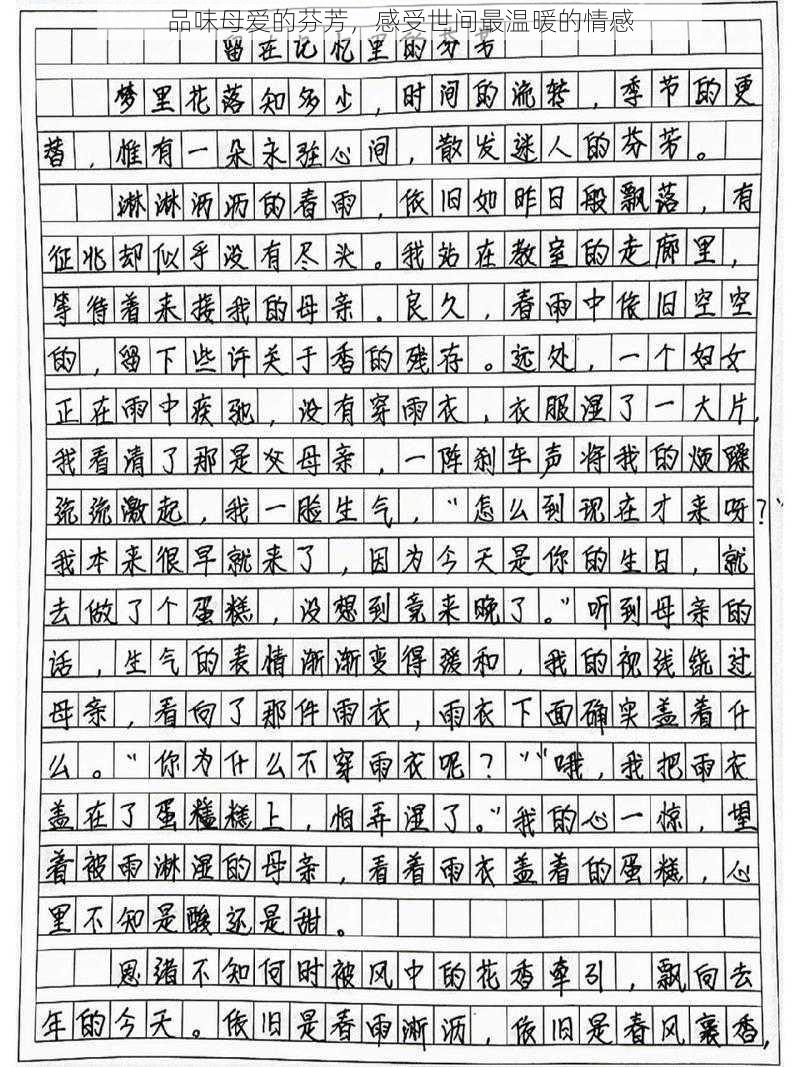 品味母爱的芬芳，感受世间最温暖的情感
留在记忆里的芬芳
梦里花落知多少，时间的流转，季节的更
替，惟有一朵永驻心间，散发迷人的芬芳。
淋淋洒洒的春雨，依旧如昨日般飘落，有
征兆却似乎没有尽头。我站在教室的走廊里，
等待着来接我的母亲。良久，春雨中依旧空空
的，留下些许关于香的残存。远处，一个妇女
正在雨中疾驰，没有穿雨衣，衣服湿了一大片，
我看清了那是父母亲，一阵刹车声将我的烦躁
流流激起，我一脸生气，“怎么到现在才来呀？”
我本来很早就来了，因为今天是你的生日，就
去做了个蛋糕，没想到竟来晚了。”听到母亲的
话，生气的表情渐渐变得缓和，我的视线绕过
母亲，看向了那件雨衣，雨衣下面确实盖着什
么。“你为什么不穿雨衣呢？”“哦，我把雨衣
盖在了蛋糕糕上，怕弄湿了。”我的心一惊，望
着被雨淋湿的母亲，看着雨衣盖着的蛋糕，心
里不知是酸还是甜。
思绪不知何时被风中的花香牵引，飘向去
年的今天。依旧是春雨淅沥，依旧是春风裹香，